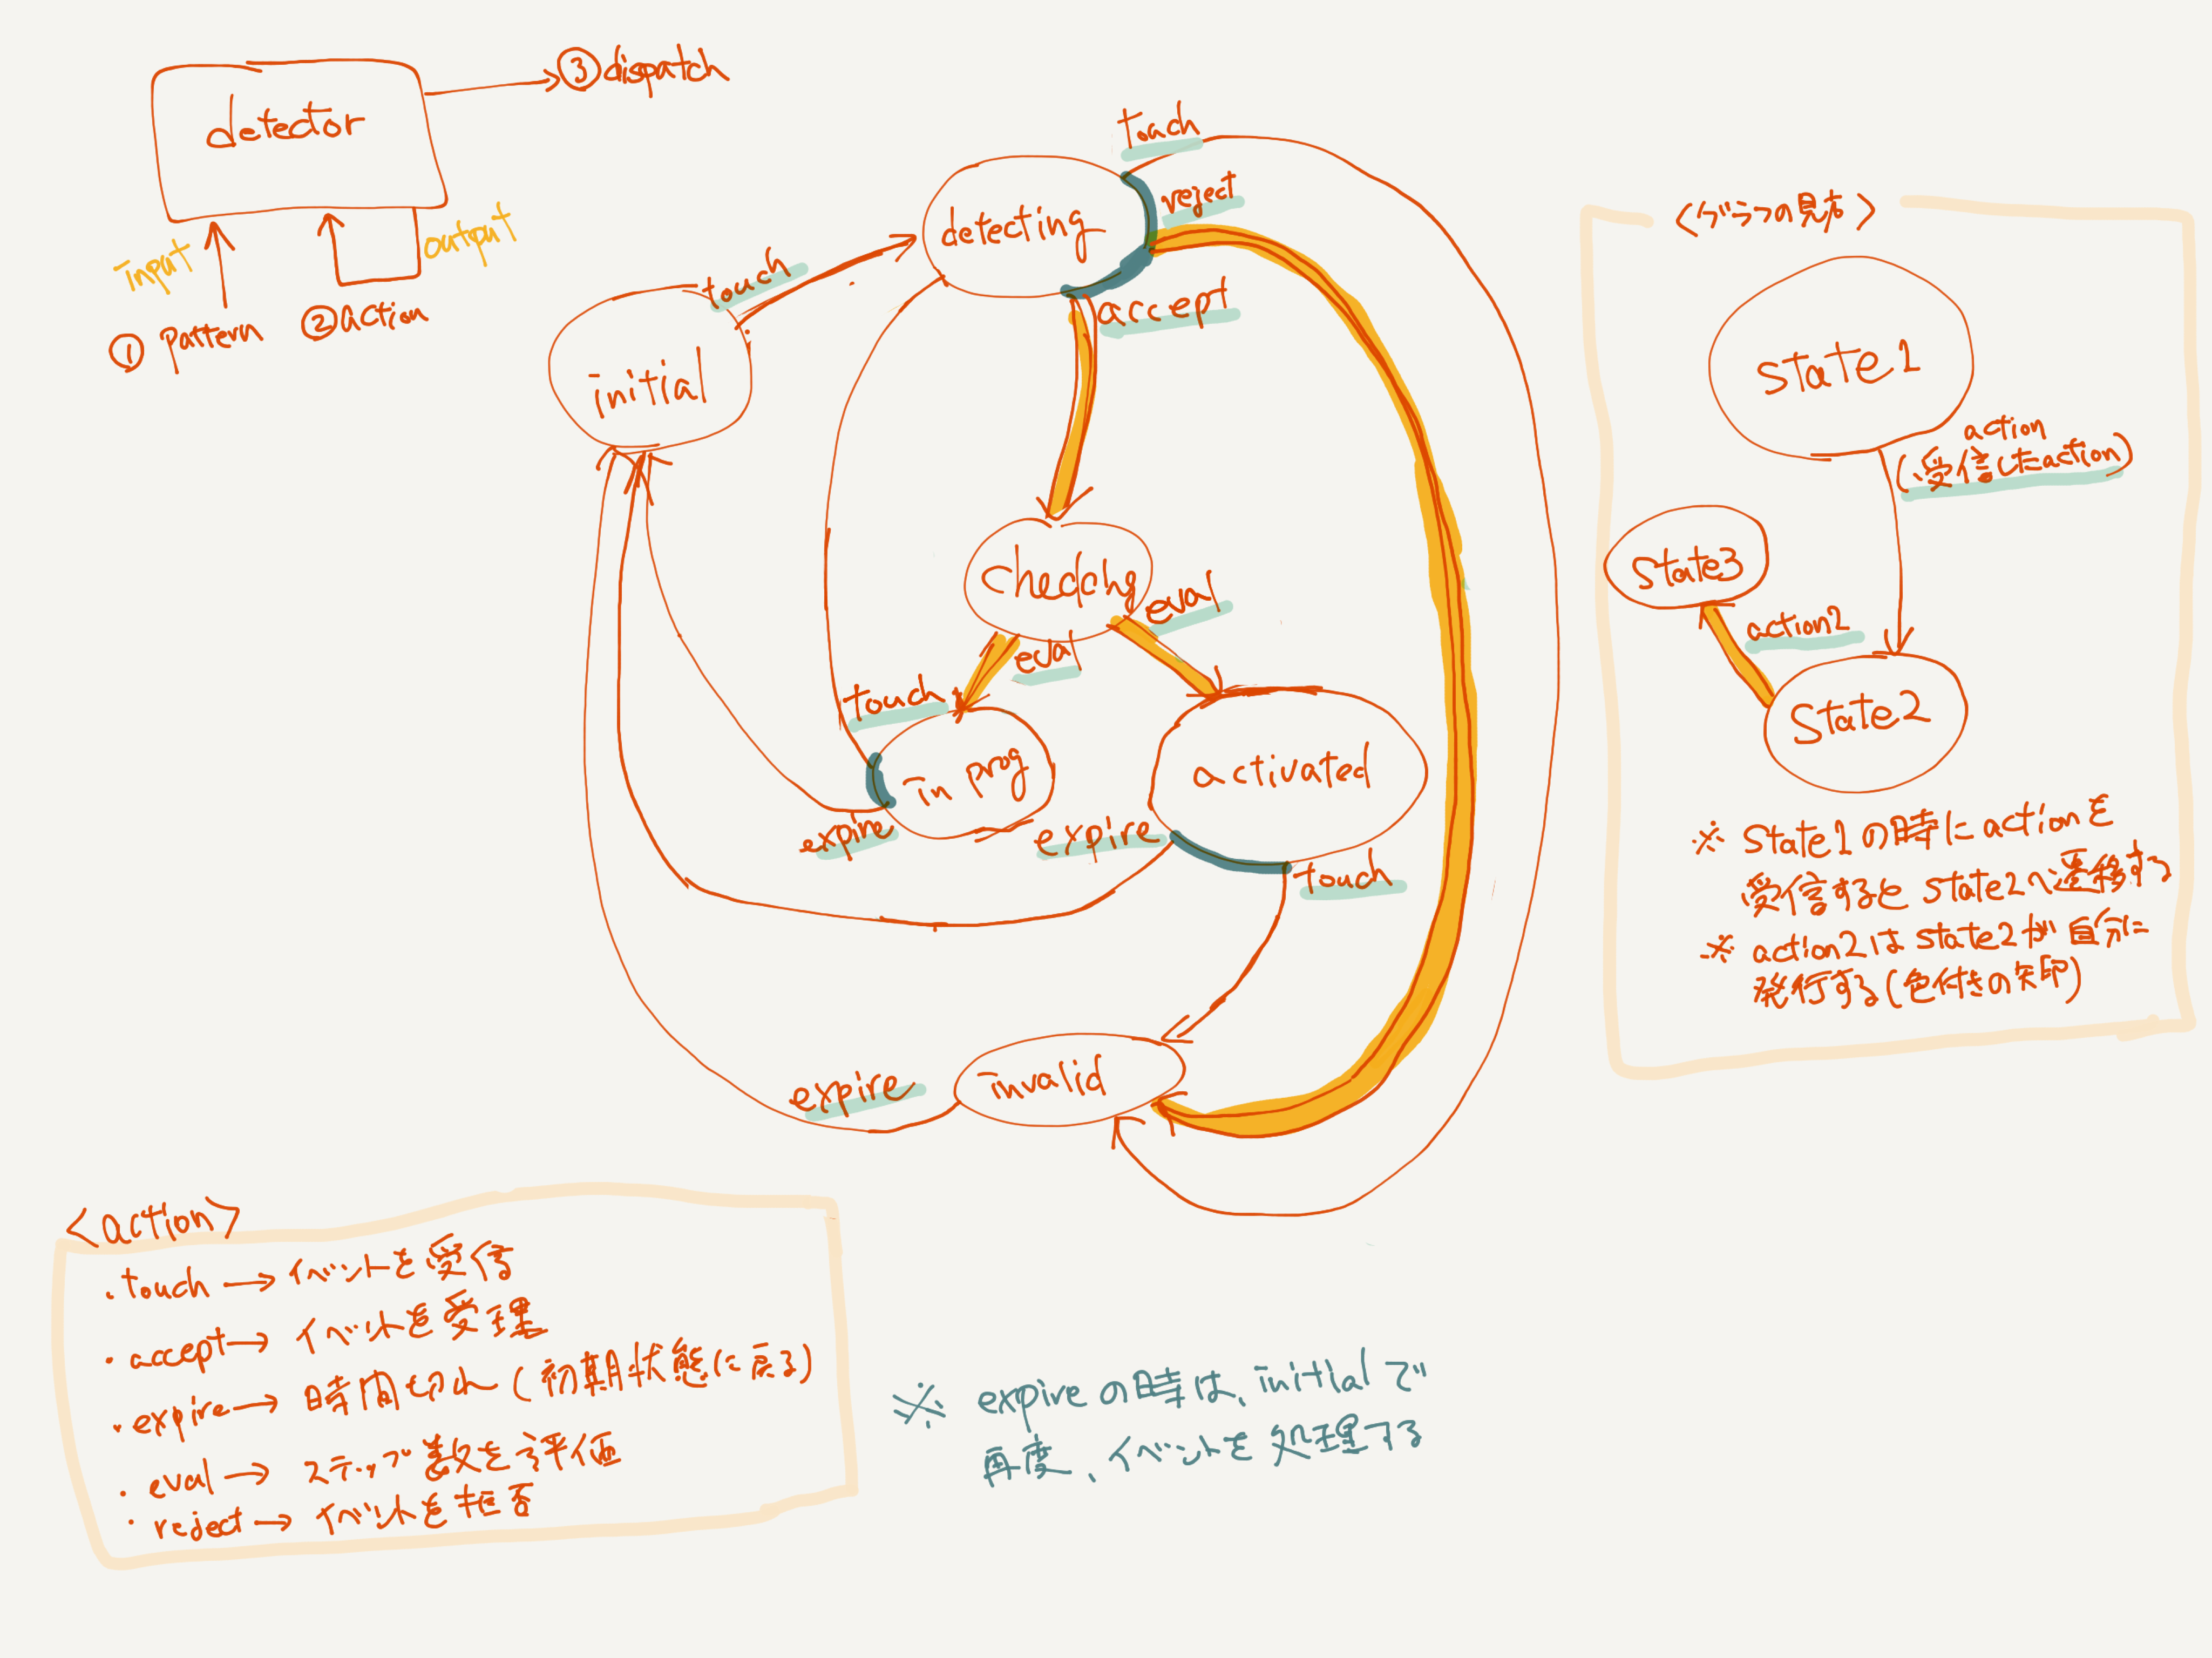 detector
③dispatch
input
output
① pattern
②action
touch
reject
detecting
touch
accept
initial
checking
eval
eval
touch
in prog
activated
expire
expire
touch
invalid
expire
<グラフの見方>
state1
action
(受信したaction)
state3
action2
state2
※ state1の時にactionを
受信するとstate2へ遷移する
※ action2はstate2が自分に
発行する(色付きの矢印)
<action>
・touch → イベントを受信
・accept → イベントを受理
・expire → 時間切れ(初期状態に戻る)
・eval → ステップ数を評価
・reject → イベントを拒否
※ expireの時は、initialで
再度、イベントを処理する